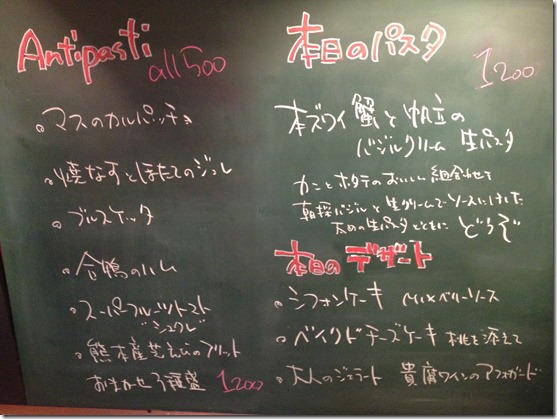 Antipasti
all 500
。マスのカルパッチョ
。焼なすとほたてのジュレ
。ブルスケッタ
。合鴨のハム
。スーパーフルーツトマト
"シュクレ"
。熊本産芝えびのフリット
おまかせ3種盛 1200
本日のパスタ
1200
本ズワイ蟹と帆立の
バジルクリーム 生パスタ
カニとホタテのおいしい組合わせで
朝採バジルと生クリームでソースにしました
太めの生パスタとともに どうぞ
本日の デザート
。シフォンケーキ Mixベリーソース
。ベイクドチーズケーキ 桃を添えて
。大人のジェラート 貴腐ワインのアフォガード